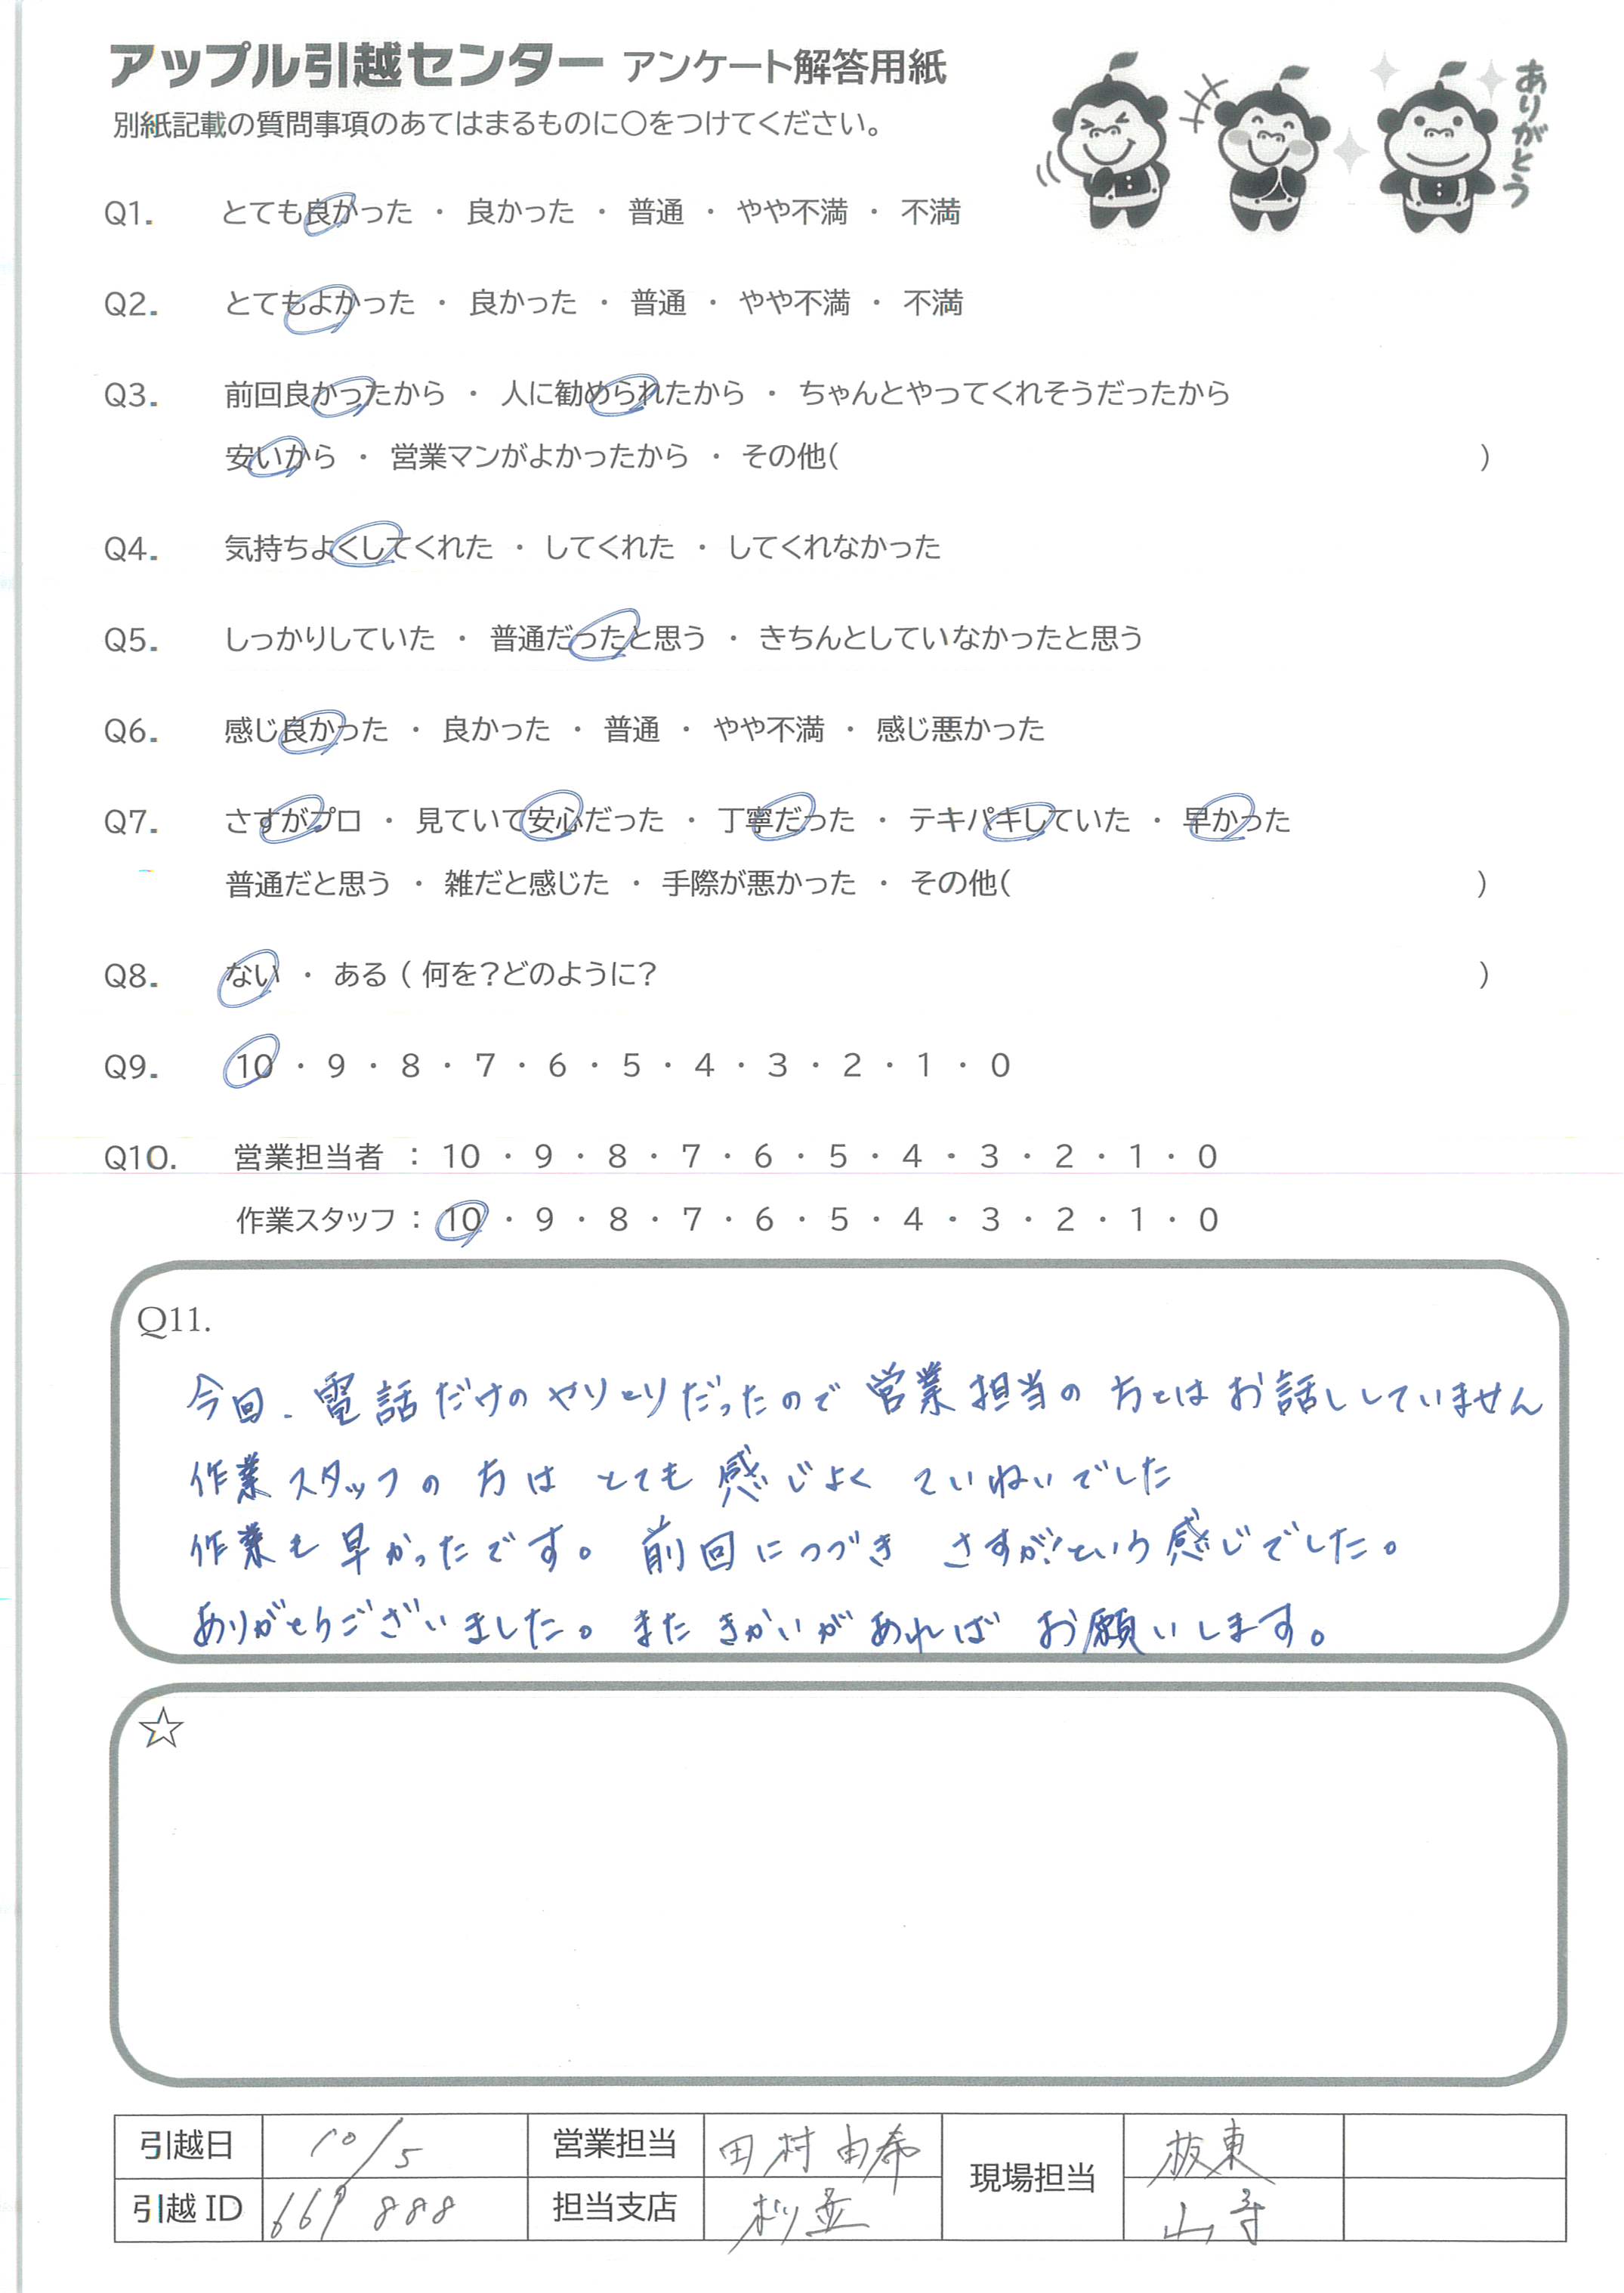 アップル引越センター アンケート解答用紙
ありがとう
別紙記載の質問事項のあてはまるものに○をつけてください。
Q1. とても良かった ・ 良かった ・ 普通 ・ やや不満 ・ 不満
Q2. とてもよかった ・ 良かった ・ 普通 ・ やや不満 ・ 不満
Q3. 前回良かったから ・ 人に勧められたから ・ ちゃんとやってくれそうだったから
安いから ・ 営業マンがよかったから ・ その他( )
Q4. 気持ちよくしてくれた ・ してくれた ・ してくれなかった
Q5. しっかりしていた ・ 普通だったと思う ・ きちんとしていなかったと思う
Q6. 感じ良かった ・ 良かった ・ 普通 ・ やや不満 ・ 感じ悪かった
Q7. さすがプロ ・ 見ていて安心だった ・ 丁寧だった ・ テキパキしていた ・ 早かった
普通だと思う ・ 雑だと感じた ・ 手際が悪かった ・ その他( )
Q8. ない ・ ある ( 何を?どのように? )
Q9. 10 ・ 9 ・ 8 ・ 7 ・ 6 ・ 5 ・ 4 ・ 3 ・ 2 ・ 1 ・ 0
Q10. 営業担当者 : 10 ・ 9 ・ 8 ・ 7 ・ 6 ・ 5 ・ 4 ・ 3 ・ 2 ・ 1 ・ 0
作業スタッフ : 10 ・ 9 ・ 8 ・ 7 ・ 6 ・ 5 ・ 4 ・ 3 ・ 2 ・ 1 ・ 0
Q11.
今回、電話だけのやりとりだったので営業担当の方とはお話ししていません
作業スタッフの方は とても感じよく ていねいでした
作業も早かったです。前回につづき さすが!という感じでした。
ありがとうございました。またきかいがあればお願いします。
☆
引越日 10/5 営業担当 田村由希 現場担当 板東
引越ID 669888 担当支店 杉並 山寺